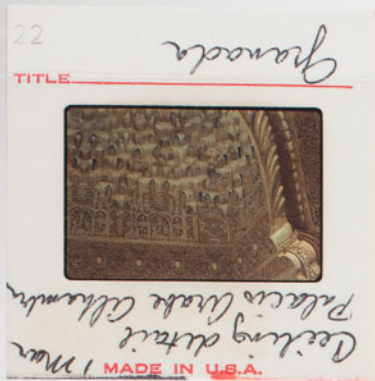 22
Granada
TITLE
Ceiling detail
Palacio Arabe Alhambra
1 Mar
MADE IN U.S.A.